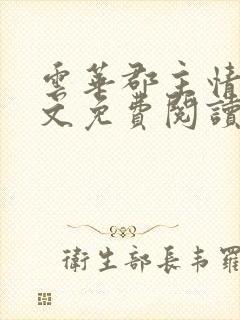 雲華郡主情
文免費閱讀
衛生部長韦羅